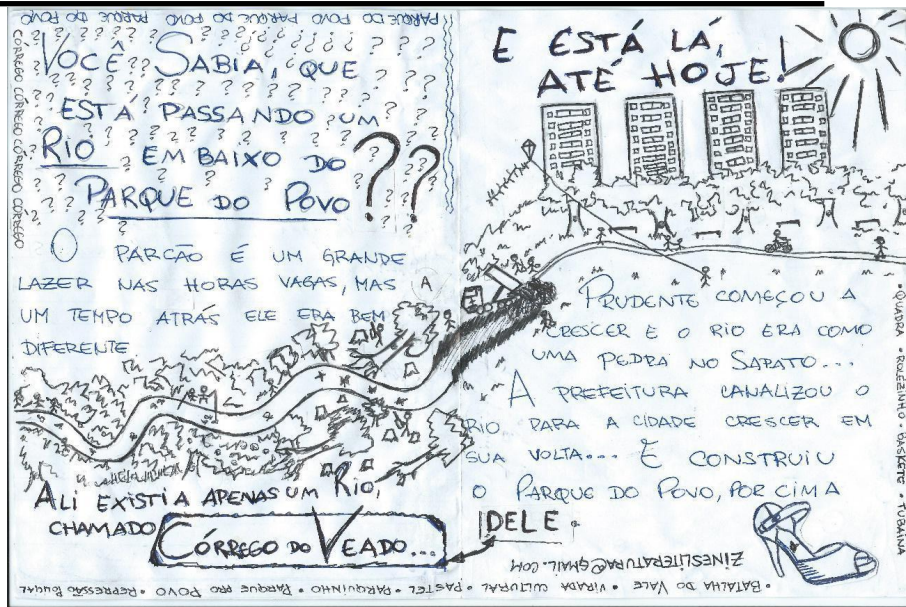 PARQUE DO POVO PARQUE DO POVO PARQUE DO POVO PARQUE DO POVO
CÓRREGO CÓRREGO CÓRREGO CÓRREGO
VOCÊ SABIA, QUE
ESTÁ PASSANDO UM
RIO EM BAIXO DO
PARQUE DO POVO ??
O PARCÃO É UM GRANDE
LAZER NAS HORAS VAGAS, MAS A
UM TEMPO ATRÁS ELE ERA BEM
DIFERENTE
ALI EXISTIA APENAS UM RIO,
CHAMADO
CÓRREGO DO VEADO...
E ESTÁ LÁ,
ATÉ HOJE!
PRUDENTE COMEÇOU A
CRESCER E O RIO ERA COMO
UMA PEDRA NO SAPATO...
A PREFEITURA CANALIZOU O
RIO PARA A CIDADE CRESCER EM
SUA VOLTA... E CONSTRUIU
O PARQUE DO POVO, POR CIMA
DELE.
• QUADRA • ROLEZINHO • BASKETE • TUBAÍNA
ZINESLITERATURA@GMAIL.COM
• BATALHA DO VALE • VIRADA CULTURAL • PASTEL • PARQUINHO • PARQUE PRO POVO • REPRESSÃO POLICIAL